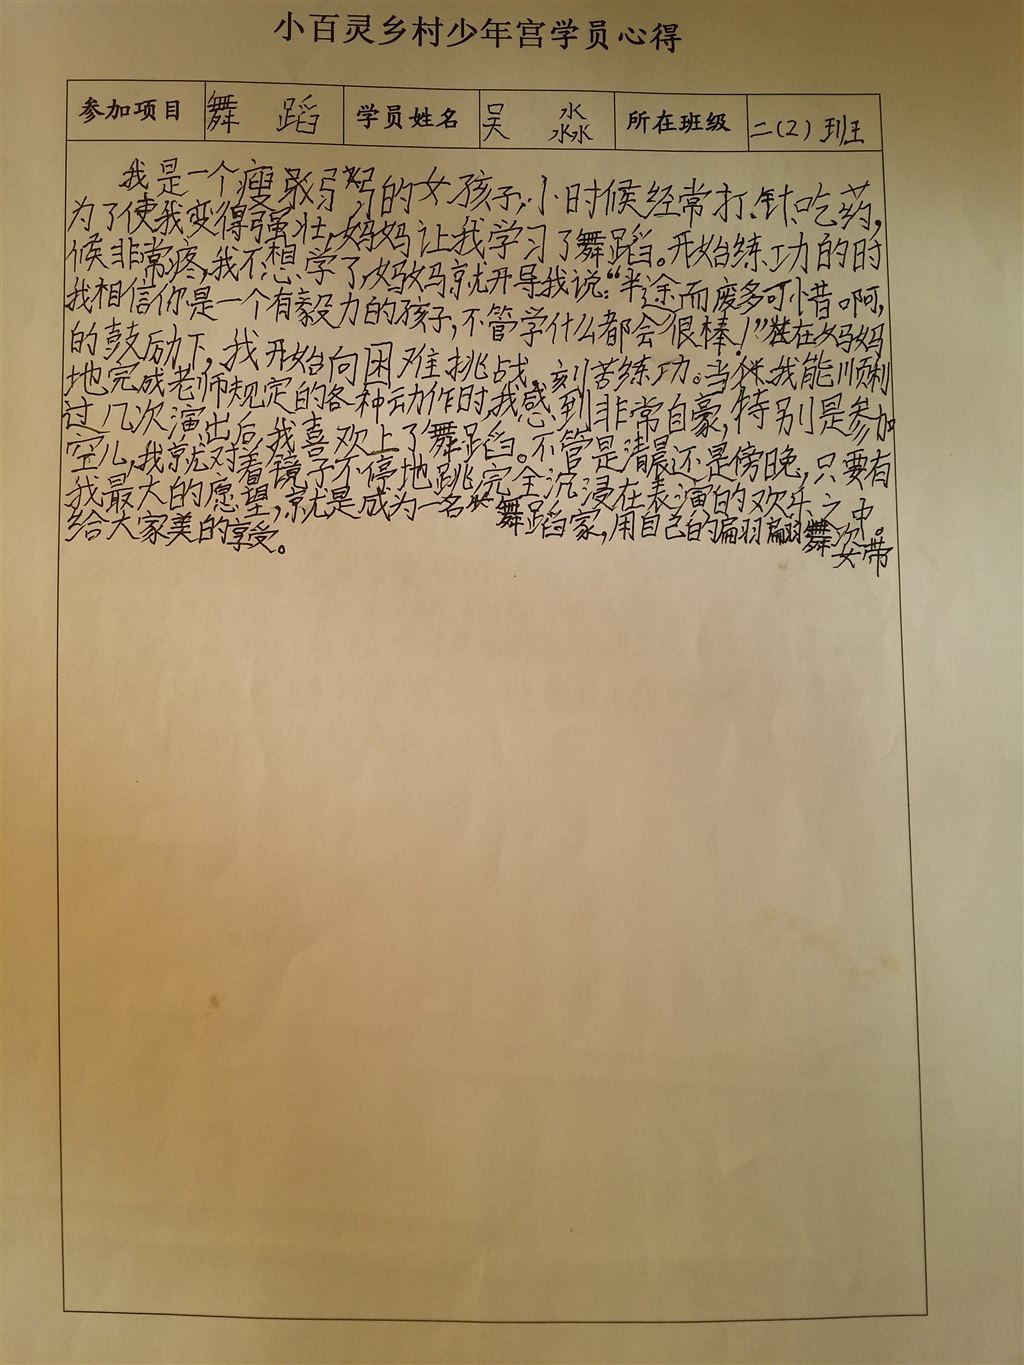 小百灵乡村少年宫学员心得
参加项目 舞 蹈 学员姓名 吴 淼 所在班级 二(2)班
我是一个瘦弱的女孩子,小时候经常打针吃药,
为了使我变得强壮,妈妈让我学习了舞蹈。开始练功的时
候非常疼,我不想学了,妈妈就开导我说:“半途而废多可惜啊,
我相信你是一个有毅力的孩子,不管学什么都会很棒!”在妈妈
的鼓励下,我开始向困难挑战,刻苦练功。当我能顺利
地完成老师规定的各种动作时,我感到非常自豪,特别是参加
过几次演出后,我喜欢上了舞蹈。不管是清晨还是傍晚,只要有
空儿,我就对着镜子不停地跳,完全沉浸在表演的欢乐之中。
我最大的愿望,就是成为一名舞蹈家,用自己的翩翩舞姿带
给大家美的享受。